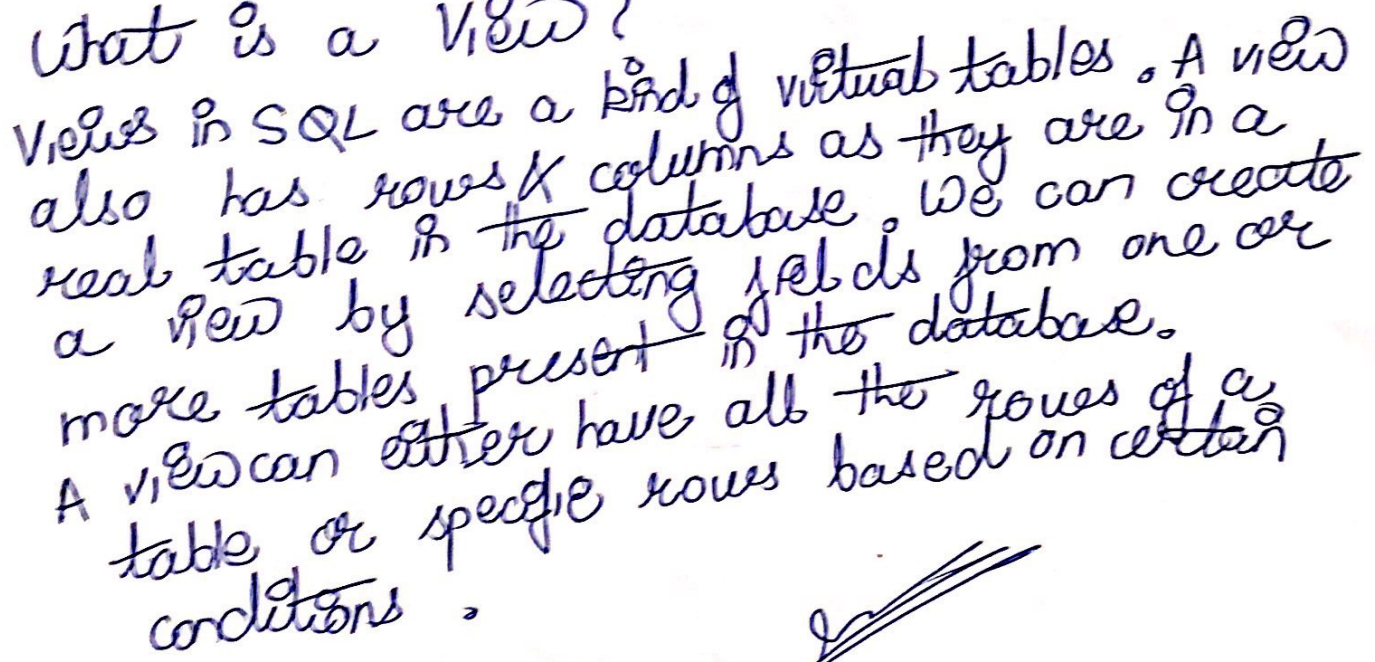 What is a View?
Views in SQL are a kind of virtual tables. A view
also has rows & columns as they are in a
real table in the database. We can create
a view by selecting fields from one or
more tables present in the database.
A view can either have all the rows of a
table or specific rows based on certain
conditions.